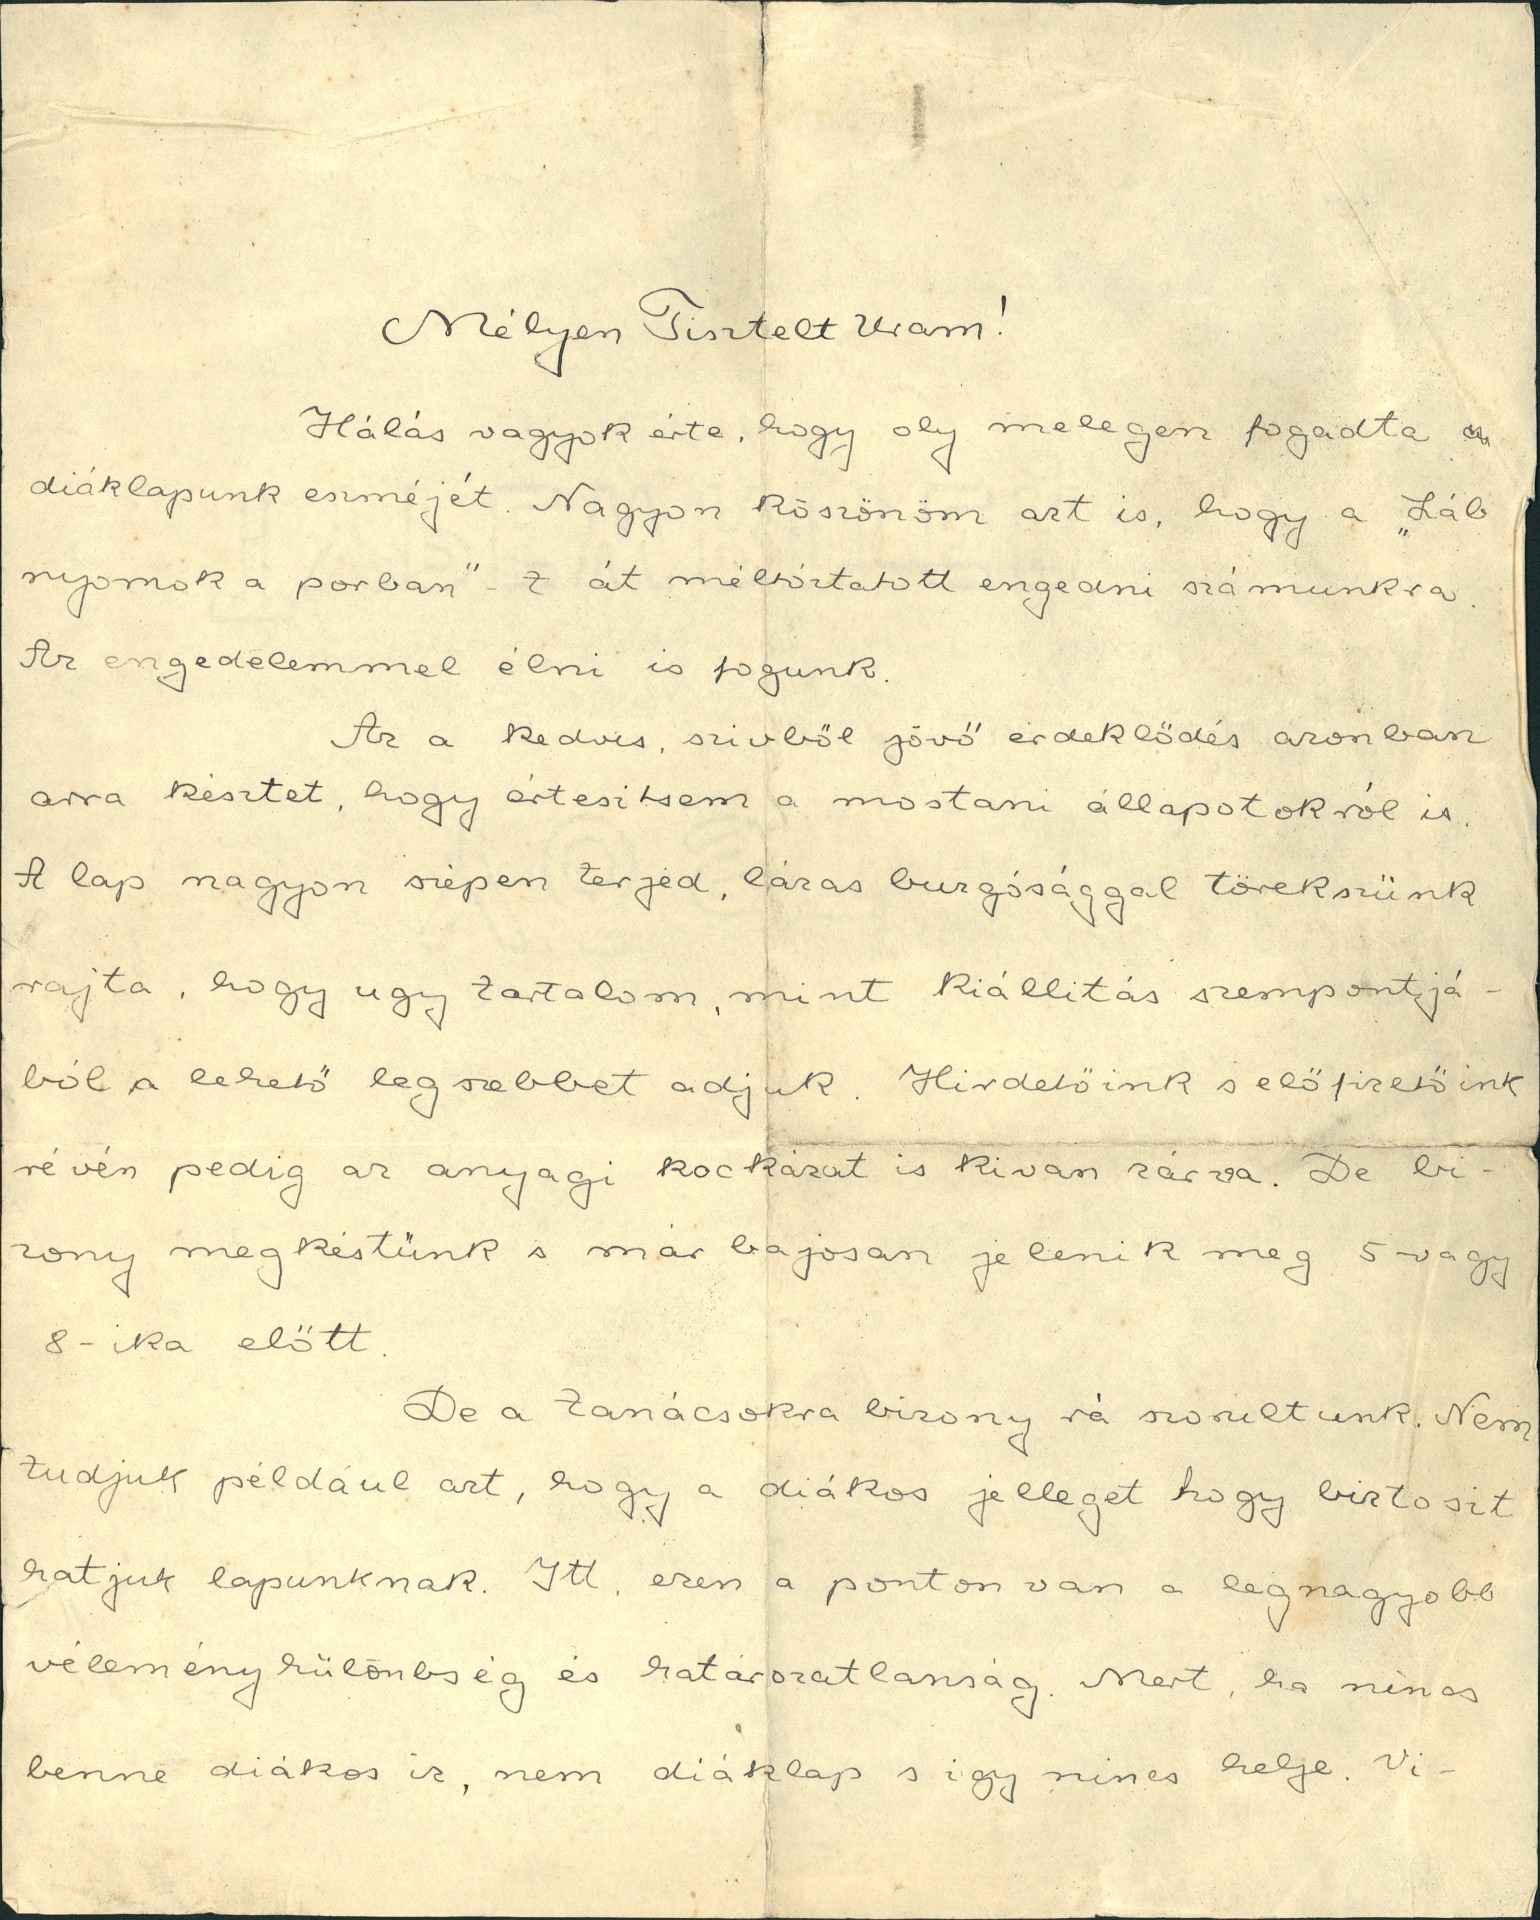 Mélyen Tisztelt Uram!
Hálás vagyok érte, hogy oly melegen fogadta a
diáklapunk eszméjét. Nagyon köszönöm azt is, hogy a „Láb
nyomok a porban"-t át méltóztatott engedni számunkra.
Az engedélemmel élni is fogunk.
Az a kedves, szivből jövő érdeklődés azonban
arra késztet, hogy értesitsem a mostani állapotokról is.
A lap nagyon szépen terjed, lázas buzgósággal törekszünk
rajta, hogy ugy tartalom, mint kiállitás szempontjá-
ból a lehető legszebbet adjuk. Hirdetőink s előfizetőink
révén pedig az anyagi kockázat is kivan zárva. De bi-
zony megkéstünk s már bajosan jelenik meg 5-vagy
8-ika előtt.
De a tanácsokra bizony rá szorultunk. Nem
tudjuk például azt, hogy a diákos jelleget hogy biztosit
hatjuk lapunknak. Itt, ezen a ponton van a legnagyobb
véleménykülönbség és határozatlanság. Mert, ha nincs
benne diákos iz, nem diáklap s igy nincs helje. Vi-